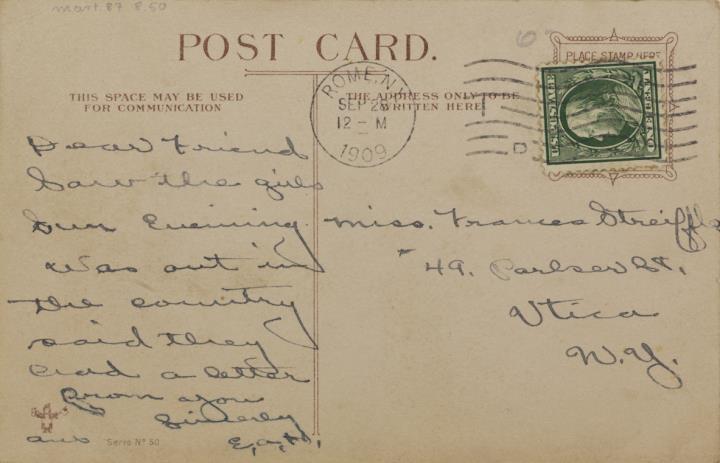 mart. 87 8.50
POST CARD.
PLACE STAMP HERE
THIS SPACE MAY BE USED
FOR COMMUNICATION
THE ADDRESS ONLY TO BE
WRITTEN HERE
ROME, N.Y.
SEP 28
12 - M
1909
D
U.S. POSTAGE
Dear Friend
Saw the girls
Sun Evening
Was out in
the country
said they
had a letter
from you
Sincerely
ans
Serre Nº 50
Miss. Frances
49. St,
Utica
N.Y.